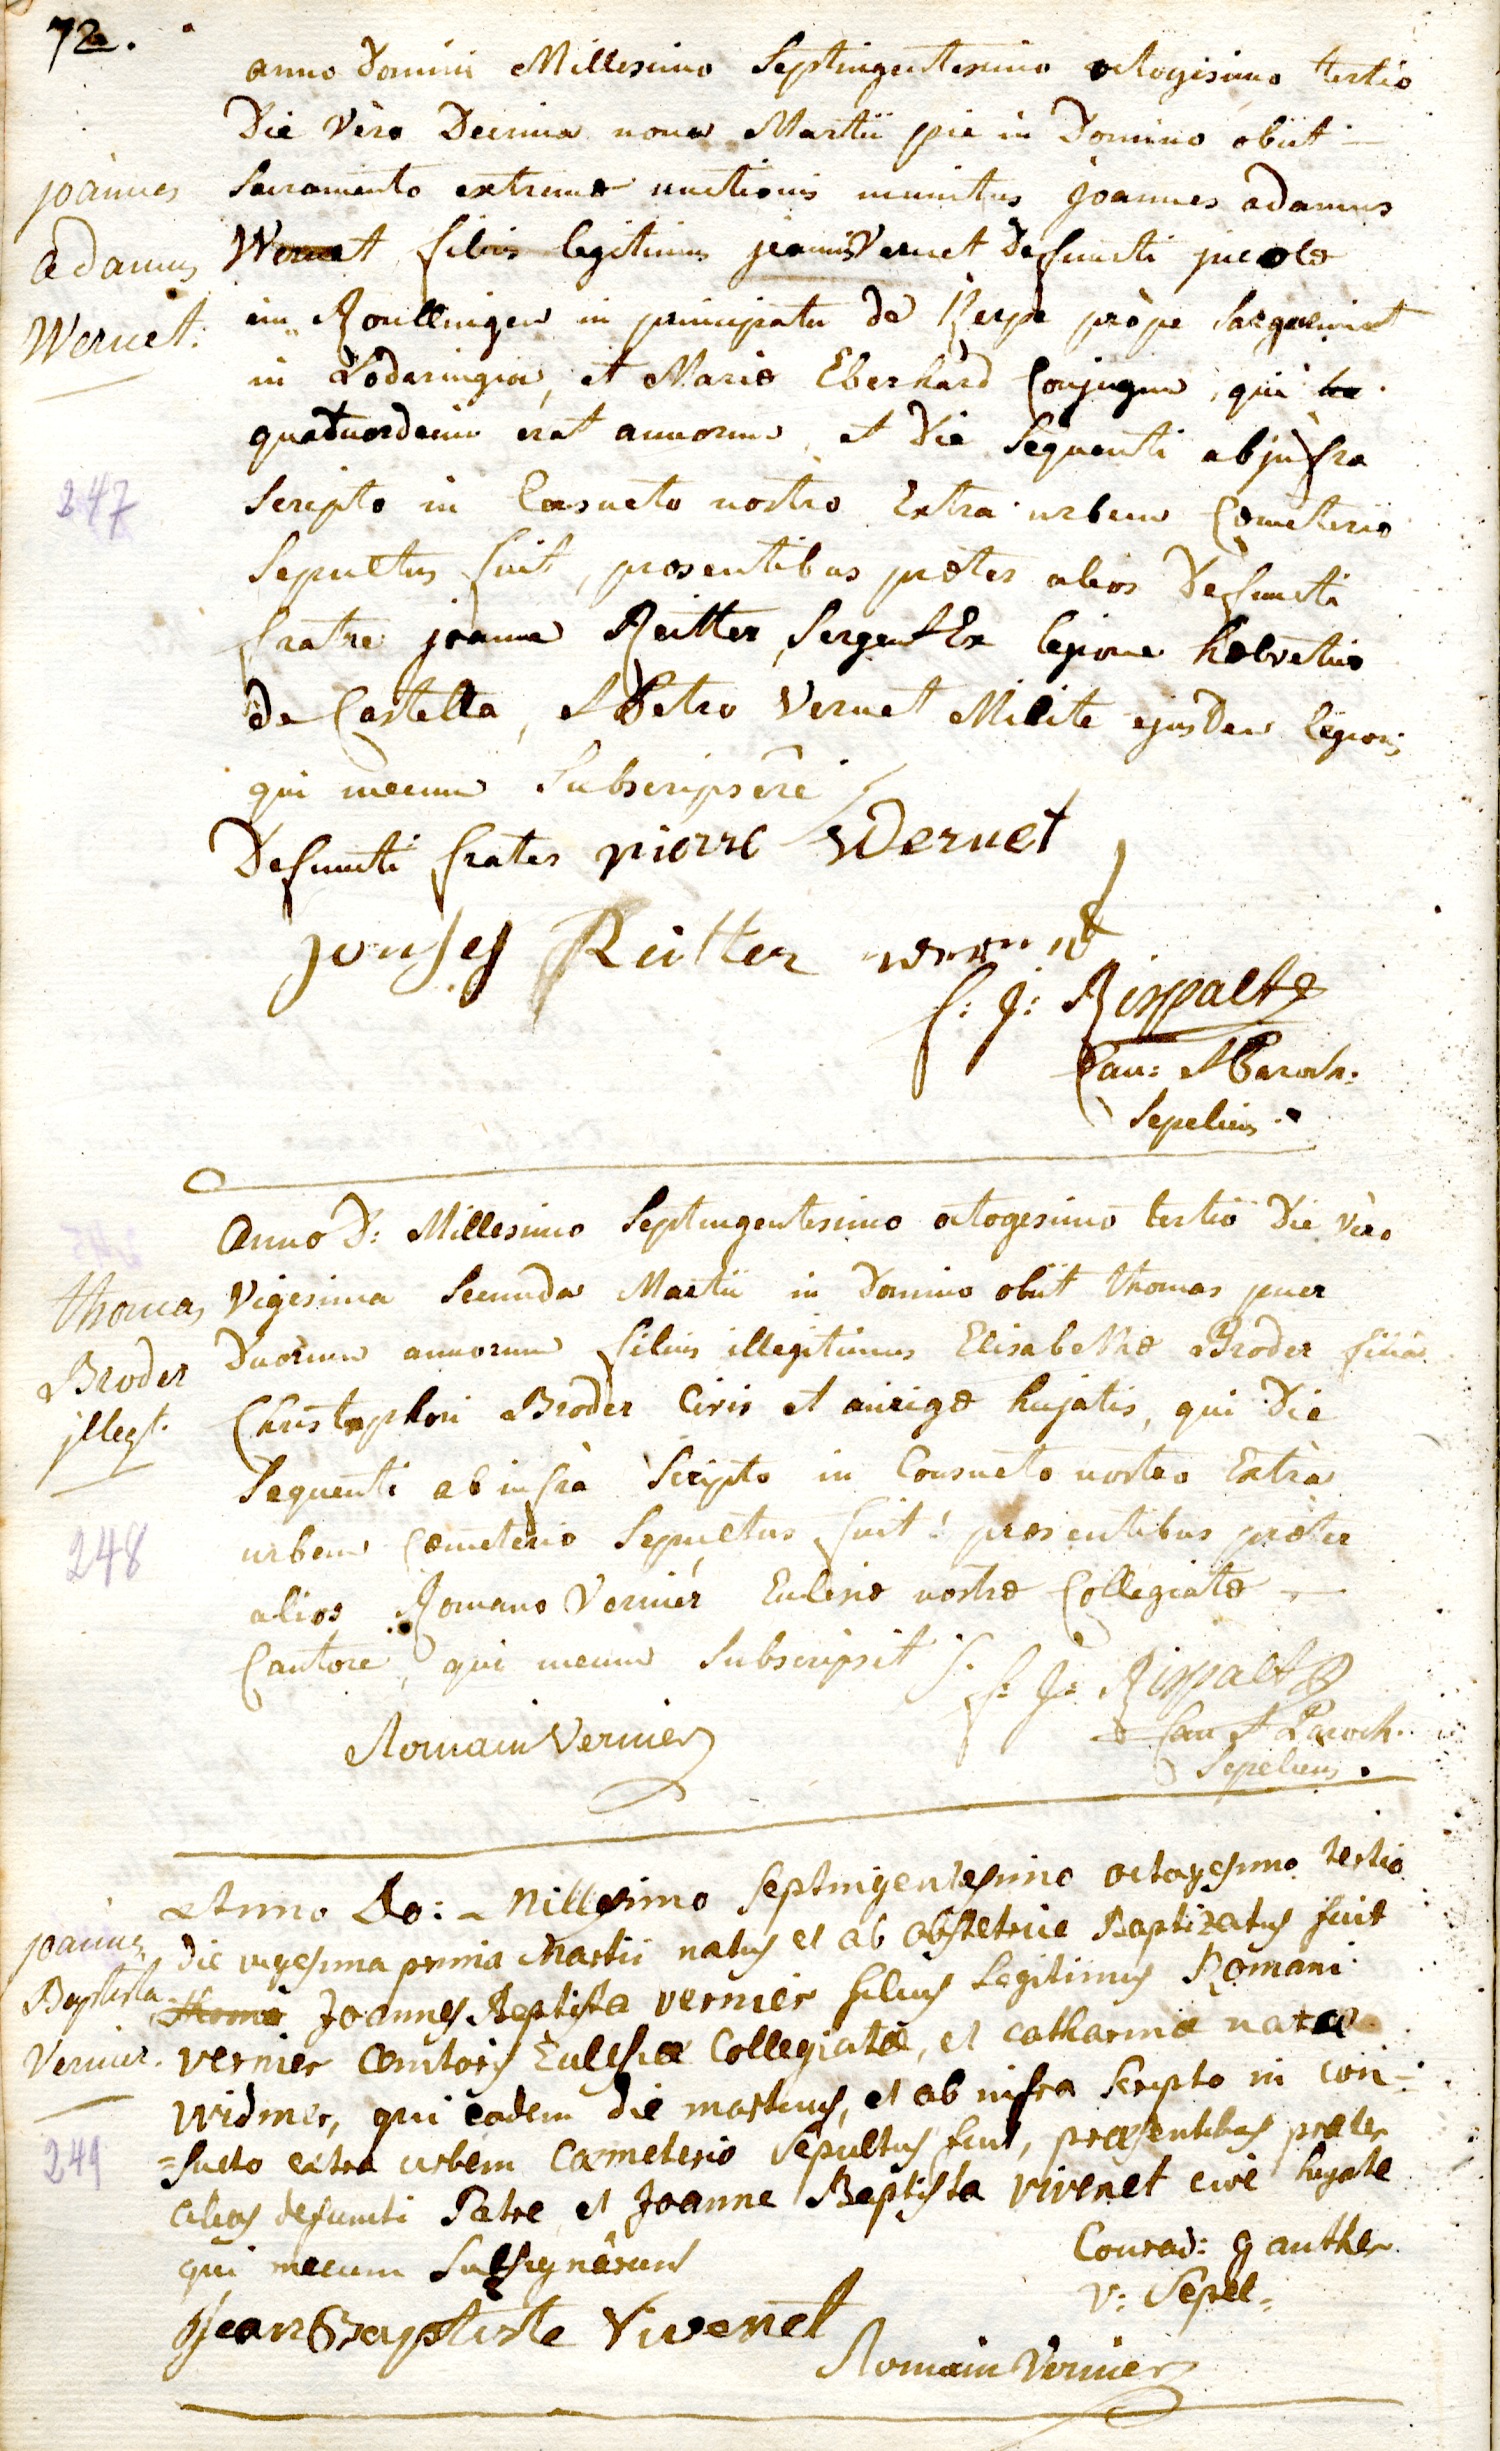 72.
anno Domini Millesimo Septingentesimo octogesimo tertio
Die Vero Decima nona Martii pie in Domino obiit —
Sacramento extremæ unctionis munitus Joannes adamus
Wernet filius legitimus joannis Vernet Defuncti jncolæ
in Roullingen in principatu de Kerpe pròpe Sargueminet
in Lodaringia, et Mariæ Eberhard Conjugum, qui
quatuordecim erat annorum, et Die Sequenti ab jnfra
Scripto in Consueto nostro Extra urbem Cœmeterio
Sepultus fuit, præsentibus præter alios Defuncti
fratre joanne Reitter Sergent Ex legione helvetica
de Castella, et Petro Vernet Milite ejusdem legionis
qui mecum Subscripsere
joannes
adamus
Wernet.
247
Defuncti frater pierre Wernet
Reitter
f: J: Rispalts
Can: et Paroch:
Sepeliens.
Anno D: Millesimo Septingentesimo octogesimo tertio Die Vero
Vigesima Secunda Martii in Domino obiit thomas puer
Duorum annorum filius illegitimus Elisabethæ Broder filiæ
Christophori Broder Civis et aurigæ hujatis, qui Die
Sequenti ab infrà Scripto in Consueto nostro Extra
urbem Cœmeterio Sepultus fuit: præsentibus præter
alios Romano Vernier Eclesiæ nostræ Collegiatæ —
Cantore, qui mecum Subscripsit
thomas
Broder
jllegt.
248
f: J: Rispalts
Can et Paroch.
Sepeliens.
Romain Vernier
Anno Do: Millesimo Septingentesimo octogesimo tertio
die vigesima prima Martii natus et ab obstetrice Baptizatus fuit
Joannes Baptista vernier filius Legitimus Romani
vernier Cantoris Eclesiæ Collegiatæ, et catharinæ natæ
widmer, qui eadem die mortuus, et ab infra scripto in con-
=sueto extra urbem Cœmeterio Sepultus fuit, præsentibus præter
alios defuncti Patre et Joanne Baptista vivenet cive hujate
qui mecum Subsignârunt
joannes
Baptista
Vernier.
249
Conrad: ganther
v: Sepel=
Jean Baptiste Vivenet
Romain Vernier